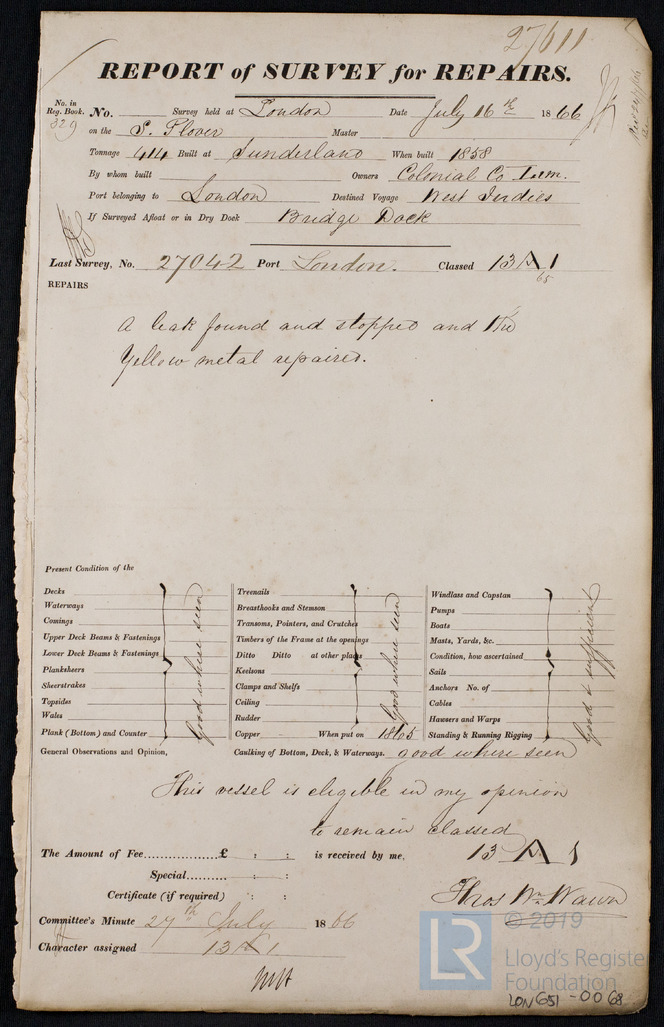 27611
REPORT of SURVEY for REPAIRS.
No. in Reg. Book. 329 No. Survey held at London Date July 16th 1866
on the S. Plover Master
Tonnage 414 Built at Sunderland When built 1858
By whom built Owners Colonial Co Lim.
Port belonging to London Destined Voyage West Indies
If Surveyed Afloat or in Dry Dock Bridge Dock
Last Survey, No. 27042 Port London. Classed 13 A 1
65
REPAIRS
A leak found and stopped and the
Yellow metal repaired.
Present Condition of the
Decks
Waterways
Comings
Upper Deck Beams & Fastenings
Lower Deck Beams & Fastenings
Planksheers
Sheerstrakes
Topsides
Wales
Plank (Bottom) and Counter
Good where seen
Treenails
Breasthooks and Stemson
Transoms, Pointers, and Crutches
Timbers of the Frame at the openings
Ditto Ditto at other places
Keelsons
Clamps and Shelfs
Ceiling
Rudder
Copper When put on 1865
Good where seen
Windlass and Capstan
Pumps
Boats
Masts, Yards, &c.
Condition, how ascertained
Sails
Anchors No. of
Cables
Hawsers and Warps
Standing & Running Rigging
Good & sufficient
General Observations and Opinion, Caulking of Bottom, Deck, & Waterways. good where seen
This vessel is eligible in my opinion
to remain classed
The Amount of Fee...............£ : : is received by me, 13 A 1
Special......... : :
Certificate (if required) : :
Thos Wm Wawn
Committee's Minute 27th July 1866
Character assigned 13 A 1
© 2019
LR
Lloyd's Register
Foundation
LON651-0068